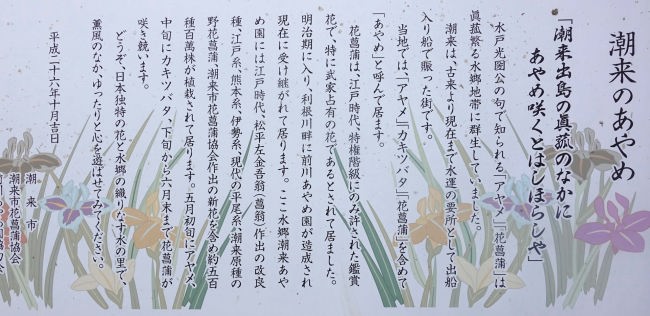 潮来のあやめ
「潮来出島の眞孤のなかに
あやめ咲くとはしほらしや」
水戸光圀公の句で知られる「アヤメ」「花菖蒲」は
眞菰繁る水郷地帯に群生していました。
潮来は、古来より現在まで水運の要所として出船
入り船で賑った街です。
当地では、「アヤメ」「カキツバタ」「花菖蒲」を含めて
「あやめ」と呼んで居ます。
花菖蒲は、江戸時代、特権階級にのみ許された鑑賞
花で、特に武家占有の花であるとされて居ました。
明治期に入り、利根川畔に前川あやめ園が造成され
現在に受け継がれて居ります。ここ水郷潮来あや
め園には江戸時代、松平左金吾翁（菖翁）作出の改良
種、江戸系、熊本系、伊勢系、現代の平尾系、潮来原種の
野花菖蒲、潮来市花菖蒲協会作出の新花を含め約五百
種百萬株が植栽されて居ります。五月初旬にアヤメ、
中旬にカキツバタ、下旬から六月末まで花菖蒲が
咲き競います。
どうぞ、日本独特の花と水郷の織りなす水の里で、
薫風のなか、ゆったりと心を遊ばせてみてください。
平成二十六年十月吉日
潮来市
潮来市花菖蒲協会